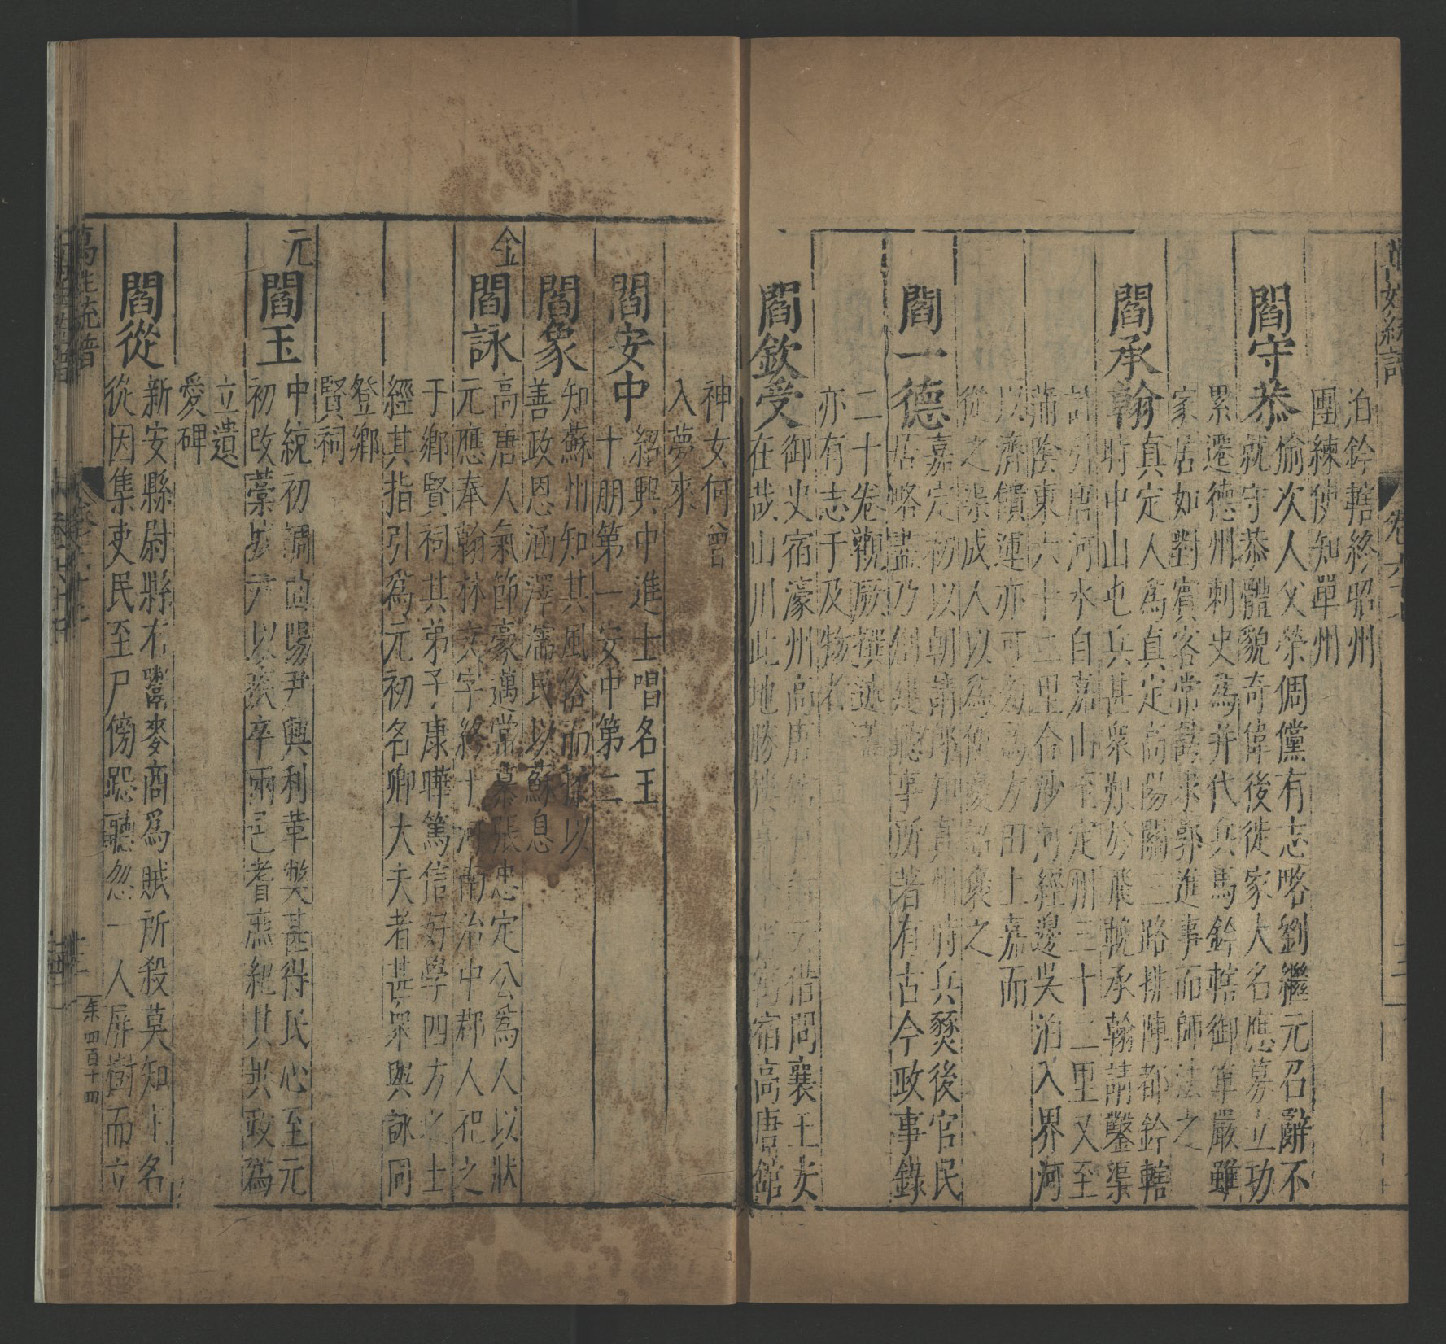 萬姓統譜
卷六十七
泊鈐轄終昭州
團練使知單州
閻守恭
愉次人父榮倜儻有志略劉繼元召辭不
就守恭體貌奇偉後徙家大名應募立功
累遷德州刺史為并代兵馬鈐轄御軍嚴雖
家居如對賓客常 郭進事而師法之
閻承翰
真定人為真定高陽關三路排陣都鈐轄
時中山屯兵甚衆艱於 承翰請鑿渠
計引唐河水自嘉山至定州三十二里又至
蒲陰東六十二里合沙河經邊吳泊入界河
以濟饋運亦可 為方田上嘉而
從之渠成人以為便優詔褒之
閻一德
嘉定初以朝請郎知真州時兵燹後官民
居略盡乃創建聽事所著有古今政事錄
二十卷觀厥撰述
亦有志于及物者
閻欽受
御史宿濠州高唐館 借問襄王安
在哉山川此地勝 宿高唐館
神女何曾
入夢來
閻安中
紹興中進士唱名王
十朋第一安中第二
閻象
知蘇州知其風俗而 以
善政恩涵澤濡民以蘇息
金
閻詠
高唐人氣節豪邁常慕張忠定公為人以狀
元應奉翰林文字終于河南治中郡人祀之
于鄉賢祠其弟子康曄篤信好學四方之士
經其指引為元初名卿大夫者甚衆與詠同
登鄉
賢祠
元
閻玉
中統初調 陽尹興利革獘甚得民心至元
初改藁 尹以 卒兩邑耆庶紀其 政為
立遺
愛碑
閻從
新安縣尉縣有鬻麥商為賊所殺莫知主名
從因集吏民至尸傍 聽忽一人屏樹而立
萬姓統譜
卷六十七
十二
禾四百十四